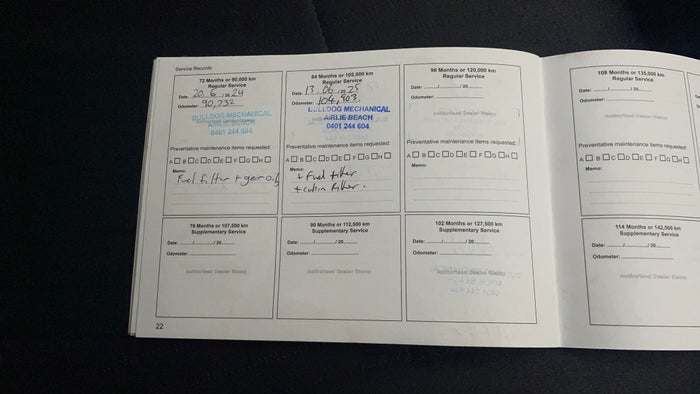 Service Records
72 Months or 90,000 km
Regular Service
Date: 20 / 6 / 20 24
Odometer: 90,732
Authorised Dealer Stamp
BULLDOG MECHANICAL
AIRLIE BEACH
0401 244 604
Preventative maintenance items requested:
A B C D E F G H
Memo:
Fuel filter + gear oils
84 Months or 105,000 km
Regular Service
Date: 13 . 06 / 20 25
Odometer: 104,903
BULLDOG MECHANICAL
AIRLIE BEACH
0401 244 604
Preventative maintenance items requested:
A B C D E F G H
Memo:
+ Fuel filter
+ cabin filter.
96 Months or 120,000 km
Regular Service
Date: / / 20
Odometer:
Authorised Dealer Stamp
Preventative maintenance items requested:
A B C D E F G H
Memo:
108 Months or 135,000 km
Regular Service
Date: / / 20
Odometer:
Authorised Dealer Stamp
Preventative maintenance items requested
A B C D E F G H
Memo:
78 Months or 107,500 km
Supplementary Service
Date: / / 20
Odometer:
Authorised Dealer Stamp
90 Months or 112,500 km
Supplementary Service
Date: / / 20
Odometer:
Authorised Dealer Stamp
102 Months or 127,500 km
Supplementary Service
Date: / / 20
Odometer:
Authorised Dealer Stamp
114 Months or 142,500 km
Supplementary Service
Date: / / 20
Odometer:
Authorised Dealer Stamp
22